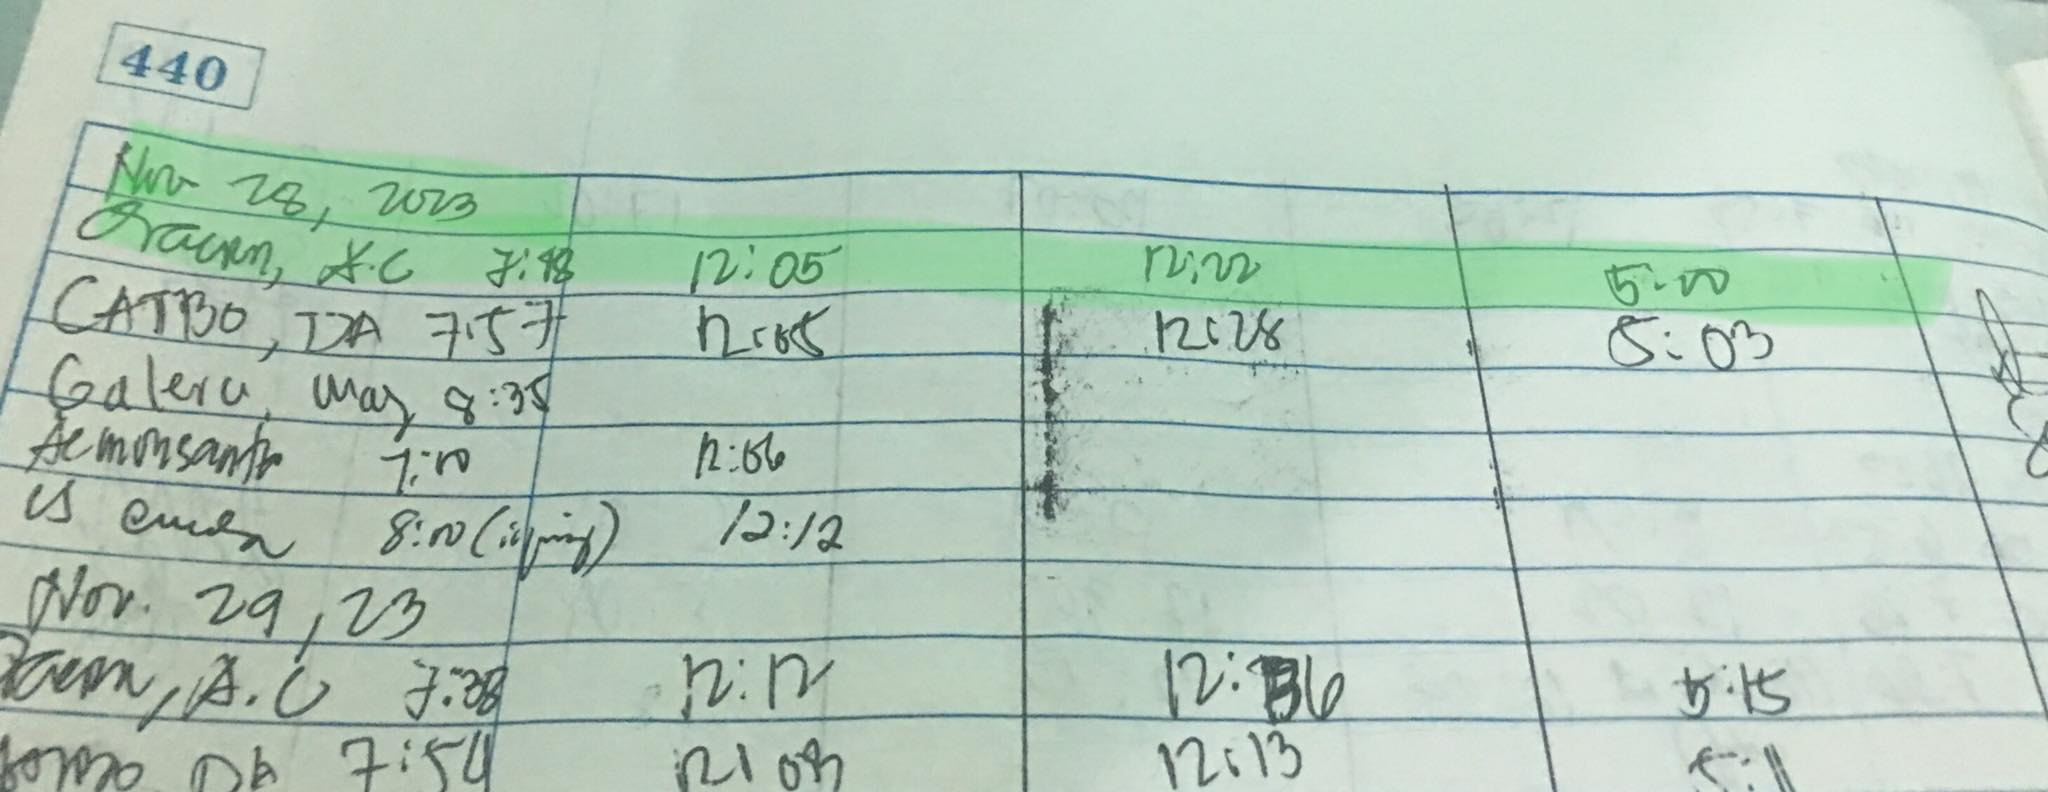 440
Nov 28, 2023
A.C 7:48 12:05 12:22 5:00
CATBO, DA 7:57 12:05 12:28 5:03
Galera, May 8:35
7:00 12:06
8:00 12:12
Nov. 29, 23
A.C 7:38 12:12 12:36 5:15
DA 7:54 12:13